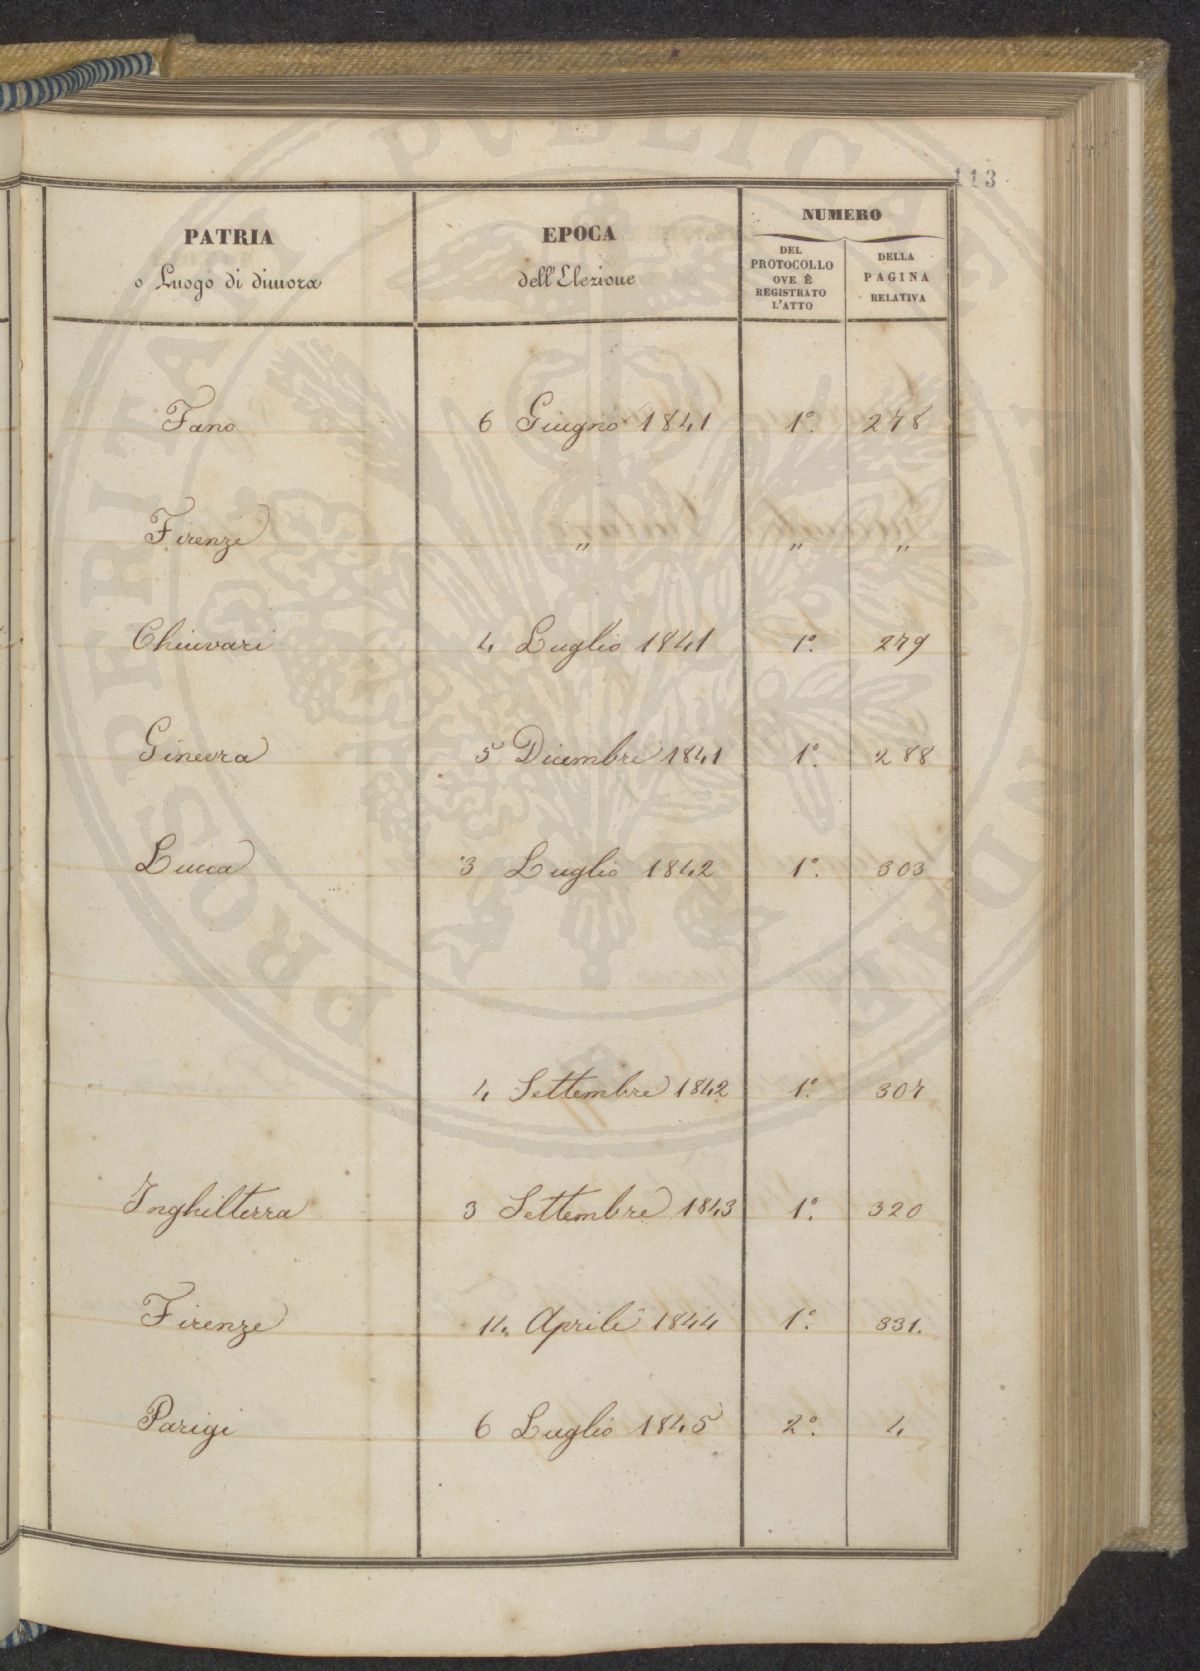 PROSPERITATI PUBLICAE
113
PATRIA
o Luogo di dimora
EPOCA
dell'Elezione
NUMERO
DEL
PROTOCOLLO
OVE È
REGISTRATO
L'ATTO
DELLA
PAGINA
RELATIVA
Fano 6 Giugno 1841 1º. 278
Firenze " " "
Chiavari 4 Luglio 1841 1º. 279
Ginevra 5 Dicembre 1841 1º. 288
Lucca 3 Luglio 1842 1º. 303
4 Settembre 1842 1º. 307
Inghilterra 3 Settembre 1843 1º. 320
Firenze 14 Aprile 1844 1º. 331.
Parigi 6 Luglio 1845 2º. 4